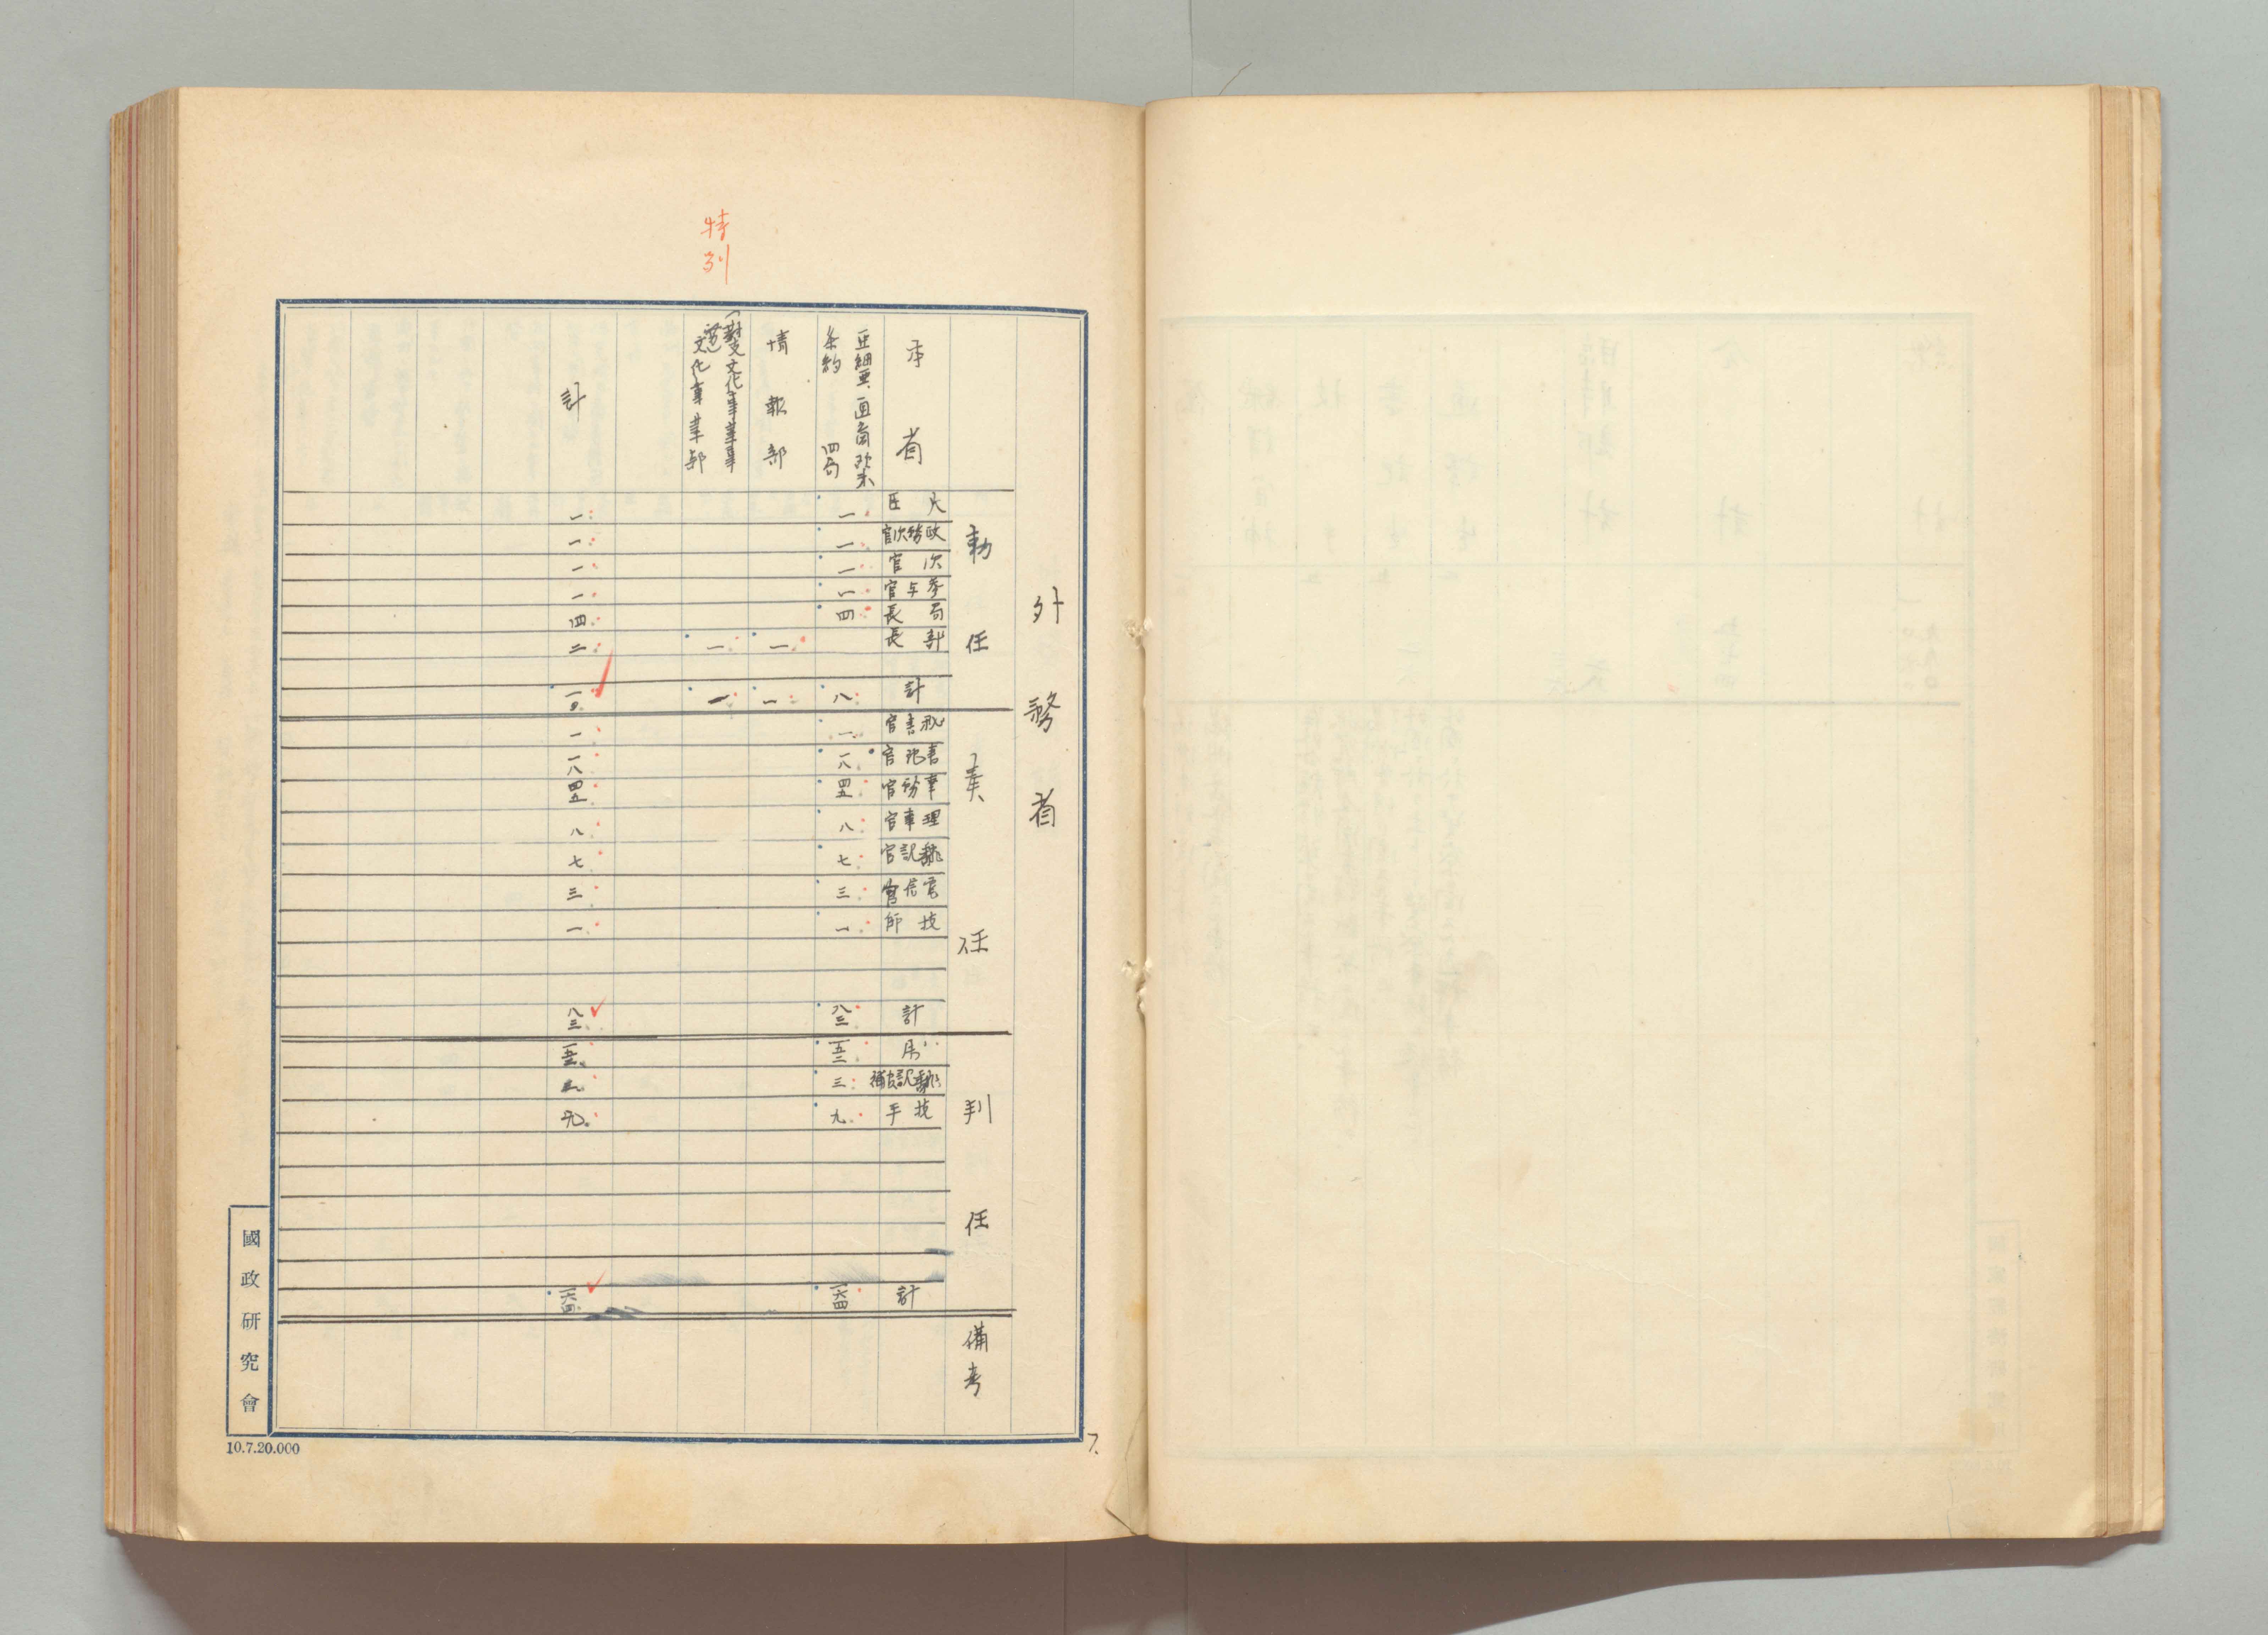 特別
外務省
勅任
奏任
判任
備考
本省
大臣
政務次官
次官
参与官
局長
部長
計
秘書官
書記官
事務官
理事官
飜訳官
電信官
技師
計
属
飜訳官補
技手
計
亜細亜、
条約 四局
一
一
一
一
四
八
一
一八
四五
八
七
三
一
八三
一五二
三
九
一六四
情報部
一
一
文化事業部
一
一
計
一
一
一
一
四
二
一〇
一
一八
四五
八
七
三
一
八三
一五二
九
一六四
國政研究會
10.7.20.000
7.